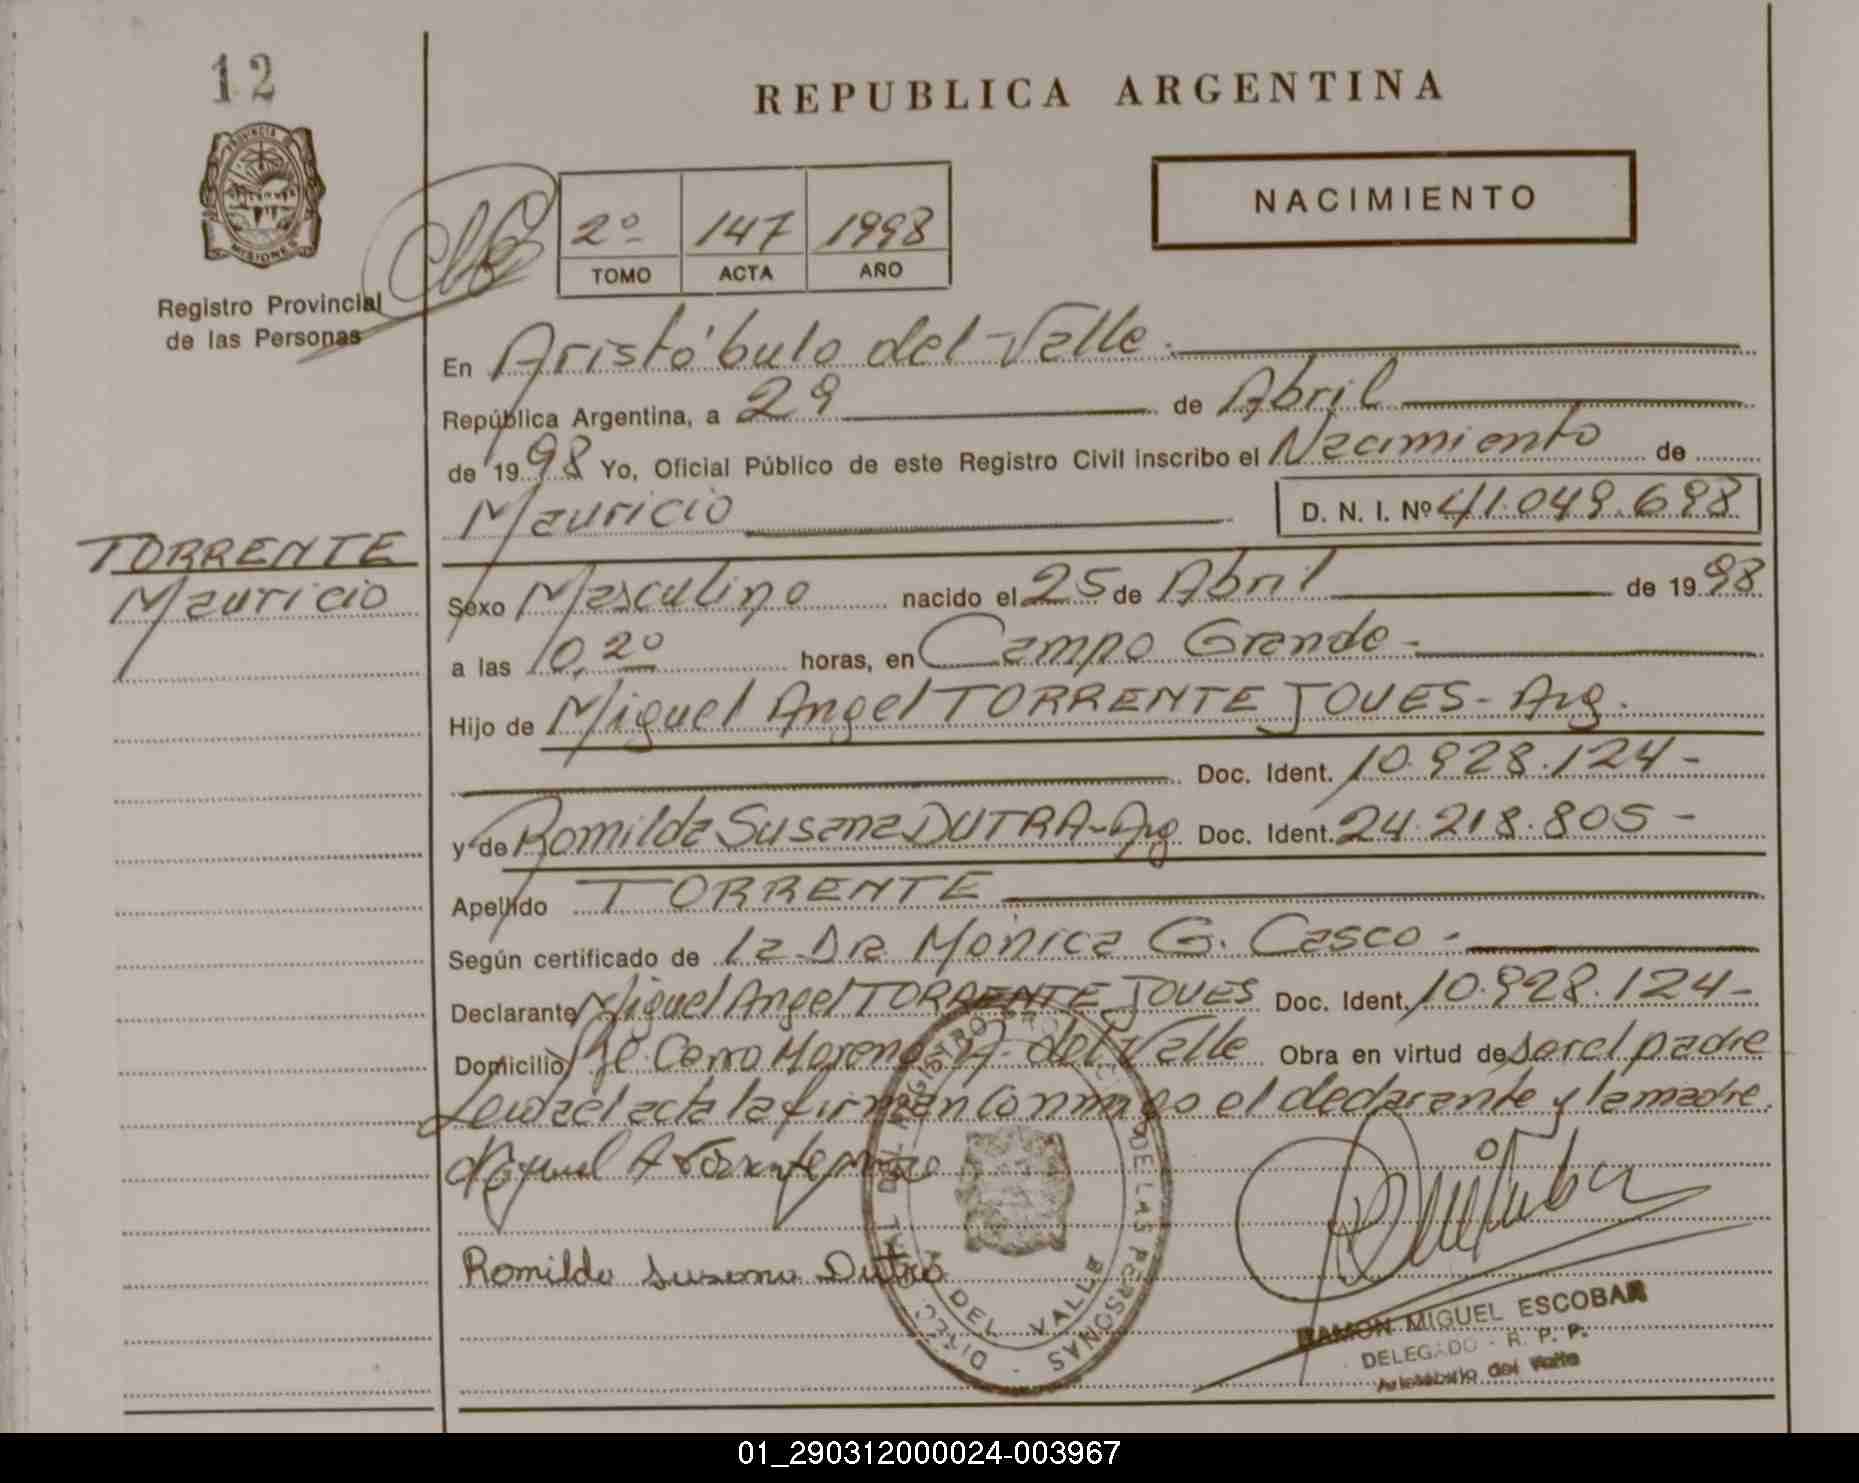 12
REPUBLICA ARGENTINA
NACIMIENTO
2º 147 1998
TOMO ACTA AÑO
PROVINCIA DE
MISIONES
Registro Provincial
de las Personas
En Aristóbulo del Valle.
República Argentina, a 29 de Abril
de 1998 Yo, Oficial Público de este Registro Civil inscribo el Nacimiento de
Mauricio D. N. I. Nº 41.049.698
TORRENTE
Mauricio
Sexo Masculino nacido el 25 de Abril de 1998
a las 10,20 horas, en Campo Grande-
Hijo de Miguel Angel TORRENTE JOUES- Arg.
Doc. Ident. 10.928.124-
y de Romilda Susana DUTRA-Arg Doc. Ident. 24.218.805-
Apellido TORRENTE
Según certificado de la Dra Mónica G. Casco-
Declarante Miguel Angel TORRENTE JOUES Doc. Ident. 10.928.124-
Domicilio Cerro Moreno A. del Valle Obra en virtud de ser el padre
Leida el acta la firman conmigo el declarante y la madre.
Miguel A Torrente
Romilda Susana Dutra
DIREC. DEL REGISTRO PROVINCIAL DE LAS PERSONAS
DEL VALLE
RAMON MIGUEL ESCOBAR
DELEGADO - R. P. P.
Aristóbulo del Valle
01_290312000024-003967